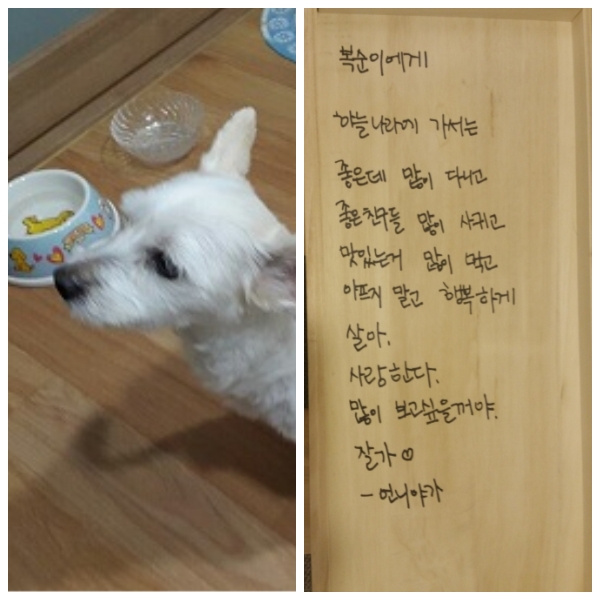 복순이에게
하늘나라에 가서는
좋은데 많이 다니고
좋은친구들 많이 사귀고
맛있는거 많이 먹고
아프지 말고 행복하게
살아.
사랑한다.
많이 보고싶을꺼야.
잘가
- 언니야가